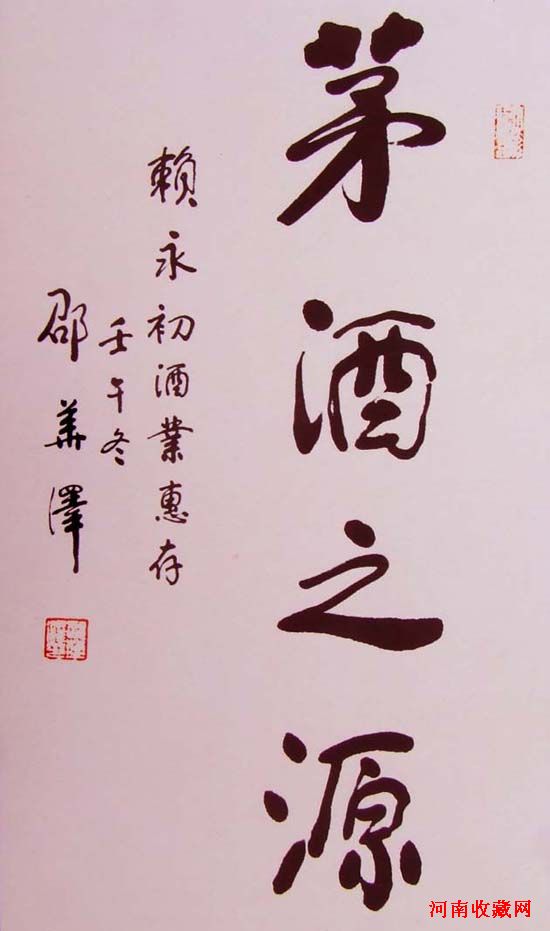 茅酒之源
賴永初酒業惠存
壬午冬
邵華澤
河南收藏网